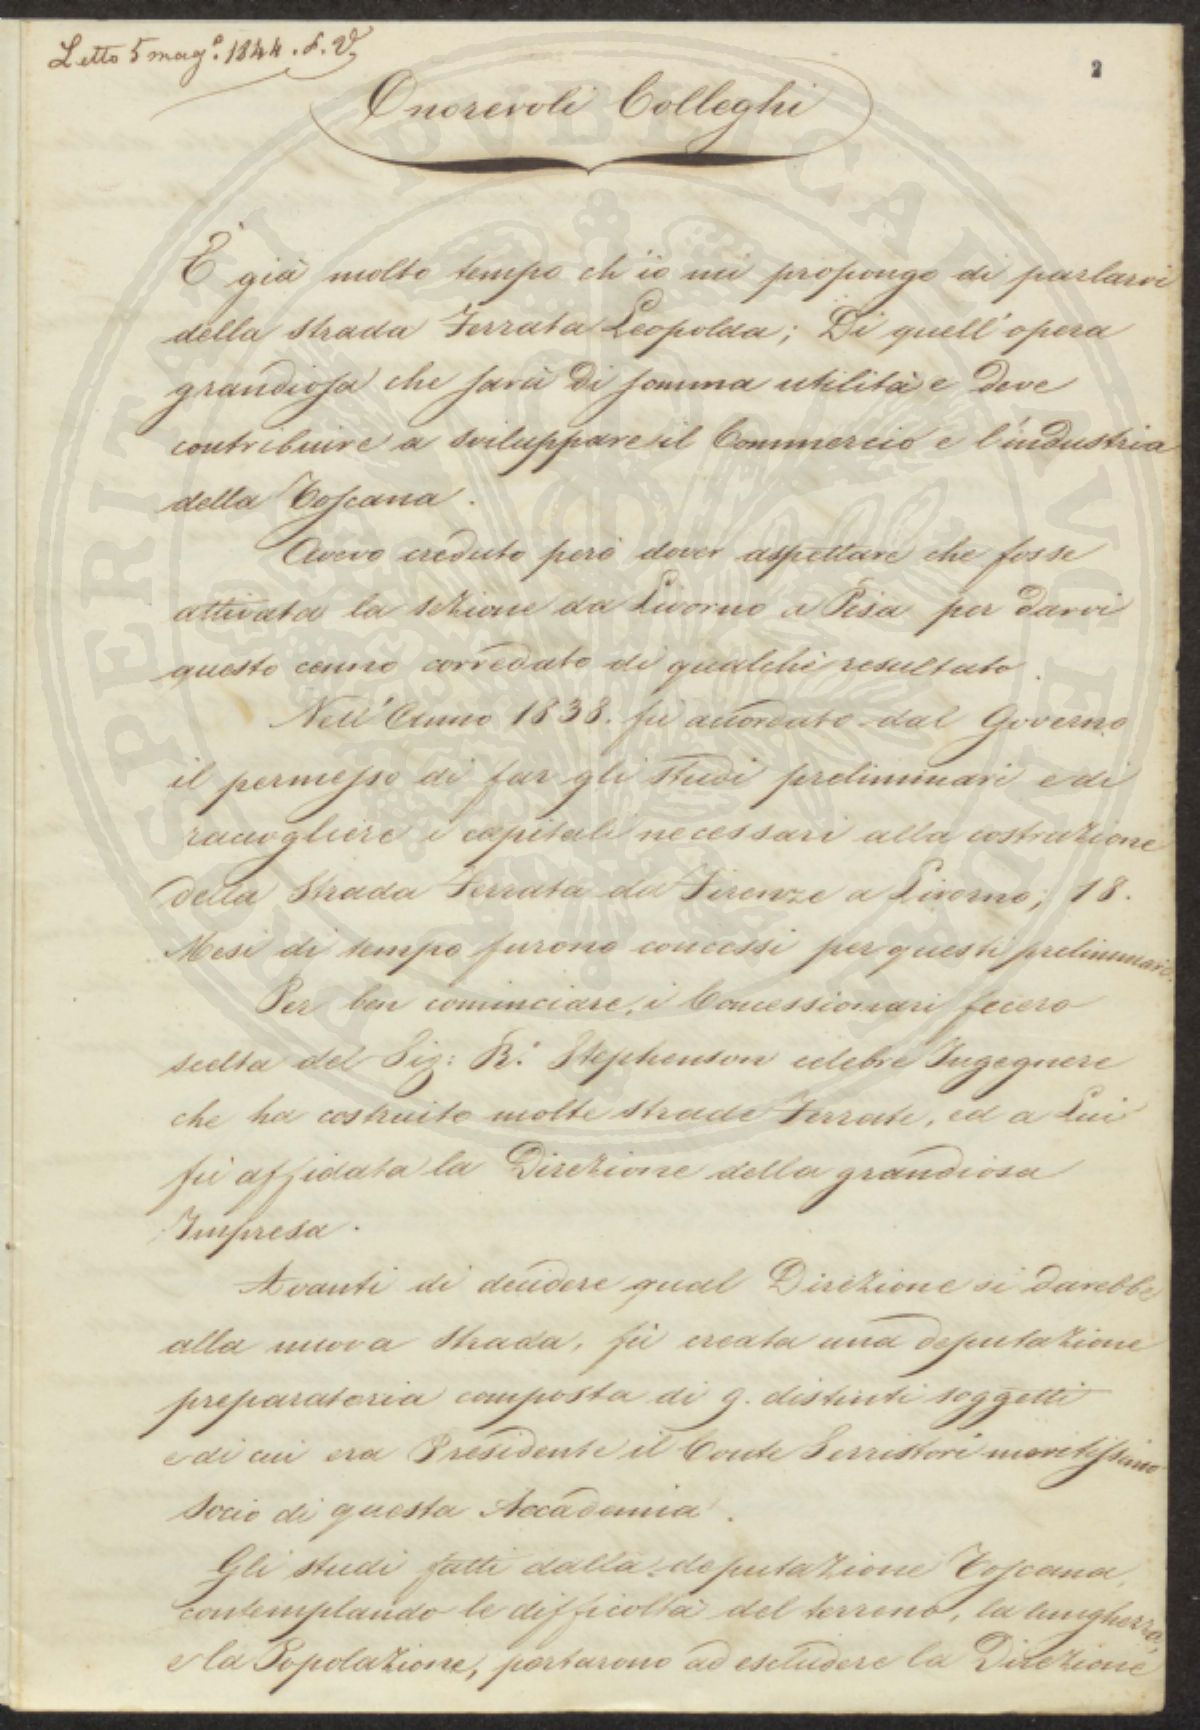 Letto 5 mag.o 1844. L. V.
2
Onorevoli Colleghi
È già molto tempo ch'io mi propongo di parlarvi
della strada Ferrata Leopolda; Di quell'opera
grandiosa che sarà di somma utilità e deve
contribuire a sviluppare il Commercio e l'industria
della Toscana.
Avevo creduto però dover aspettare che fosse
attivata la sezione da Livorno a Pisa per darvi
questo cenno corredato di qualche resultato.
Nell'Anno 1838. fù accordato dal Governo
il permesso di far gli studi preliminari e di
raccogliere i capitali necessari alla costruzione
della Strada Ferrata da Firenze a Livorno; 18.
Mesi di tempo furono concessi per questi preliminari.
Per ben cominciare, i Concessionari fecero
scelta del Sig: R.t Stephenson celebre Ingegnere
che ha costruito molte strade Ferrate, ed a Lui
fù affidata la Direzione della grandiosa
Impresa.
Avanti di decidere qual Direzione si darebbe
alla nuova Strada, fù creata una deputazione
preparatoria composta di 9. distinti soggetti
e di cui era Presidente il Conte Serristori meritissimo
Socio di questa Accademia.
Gli studi fatti dalla deputazione Toscana,
contemplando le difficoltà del terreno, la lunghezza,
e la Popolazione, portarono ad escludere la Direzione
PERITATI PVBLICAE AVGENDAE